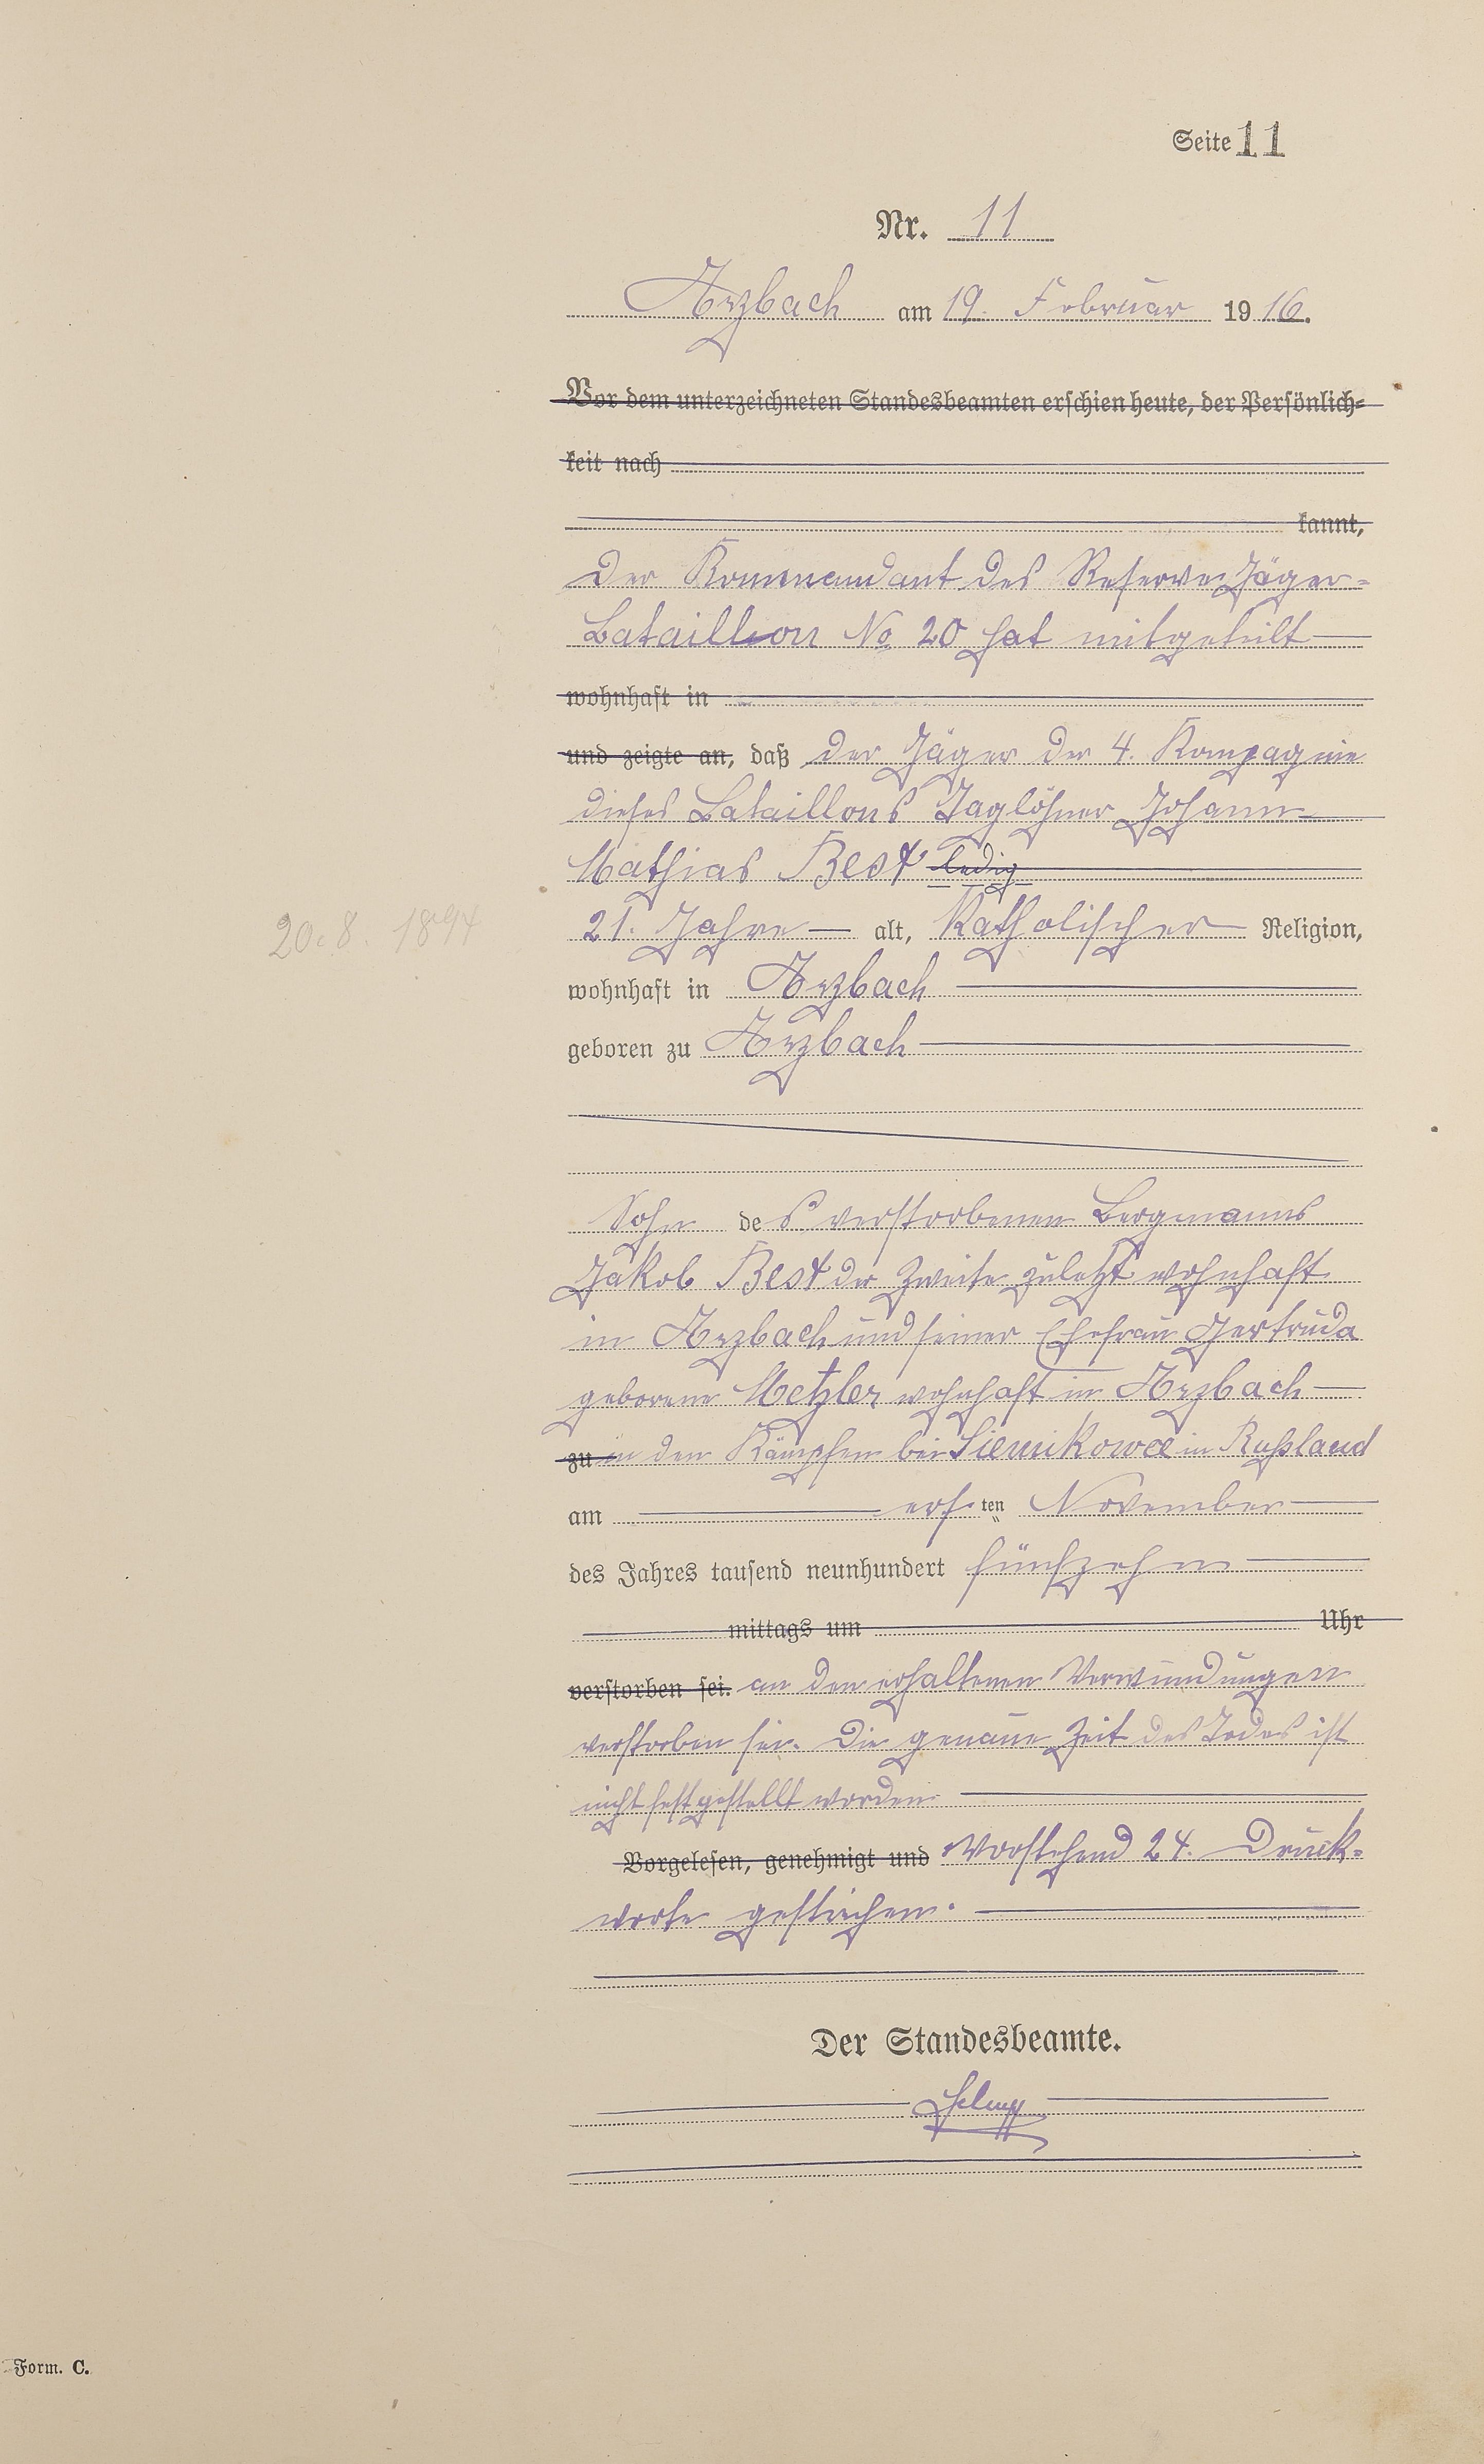 Seite 11
Nr. 11
Arzbach am 19. Februar 1916.
Vor dem unterzeichneten Standesbeamten erschien heute, der Persönlich=
keit nach
kannt,
Der Kommandant des Reserve Jäger=
Bataillon No 20 hat mitgeteilt
wohnhaft in
und zeigte an, daß der Jäger der 4. Kompagnie
dieses Bataillons Taglöhner Johann
Mathias Best ledig
20.8. 1894
21. Jahre alt, Katholischer Religion,
wohnhaft in Arzbach
geboren zu Arzbach
Sohn des verstorbenen Bergmanns
Jakob Best der Zweite zuletzt wohnhaft
in Arzbach und seiner Ehefrau Gertruda
geborene Metzler wohnhaft in Arzbach
zu in den Kämpfen bei Siemikowce in Rußland
am ersten November
des Jahres tausend neunhundert fünfzehn
mittags um Uhr
verstorben sei. an den erhaltenen Verwundungen
verstorben sei. Die genaue Zeit des Todes ist
nicht festgestellt worden
Vorgelesen, genehmigt und Vorstehend 24. Druck=
worte gestrichen.
Der Standesbeamte.
Form. C.